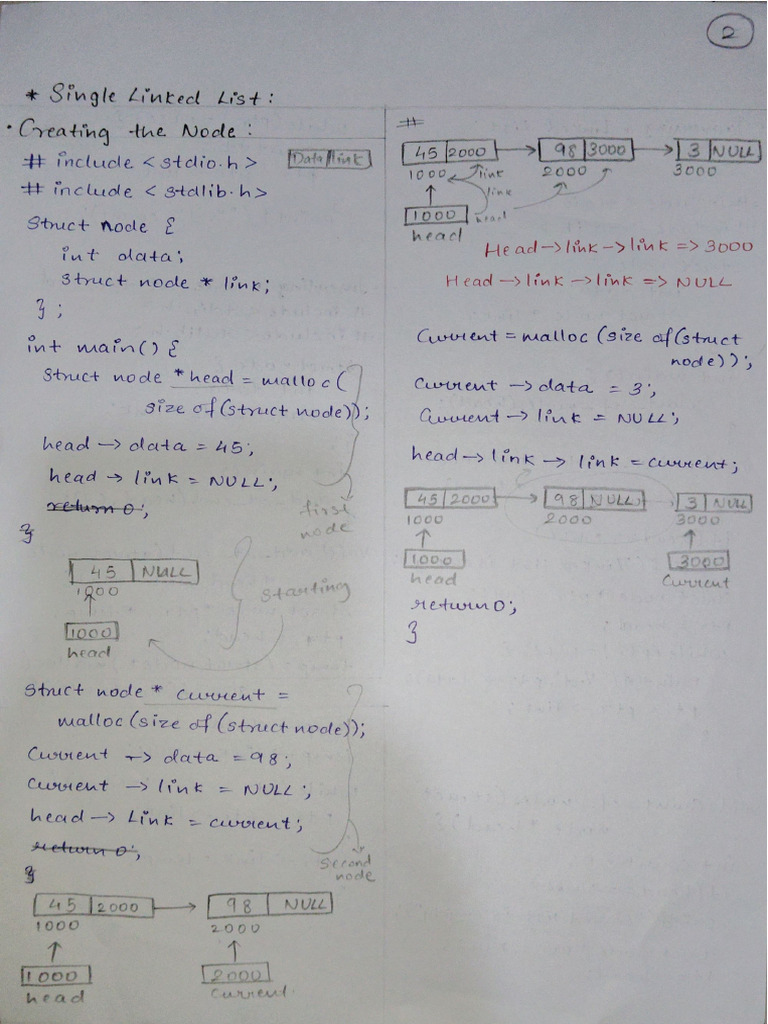 2
* Single Linked List:
• Creating the Node:
# include <stdio.h>
Data link
# include <stdlib.h>
struct node {
int data;
struct node * link;
};
int main() {
struct node * head = malloc(
size of (struct node));
head → data = 45;
head → link = NULL;
return 0;
}
first
node
45 NULL
1000
1000
head
starting
struct node * current =
malloc (size of (struct node));
Current → data = 98;
Current → link = NULL;
head → Link = current;
return 0;
}
second
node
45 2000 → 98 NULL
1000 2000
1000 2000
head current.
#
45 2000 → 98 3000 → 3 NULL
1000 link 2000 3000
link
1000 head
head
Head → link → link => 3000
Head → link → link => NULL
Current = malloc (size of (struct
node));
Current → data = 3;
Current → link = NULL;
head → link → link = current;
45 2000 → 98 NULL → 3 NULL
1000 2000 3000
1000 3000
head Current
return 0;
}